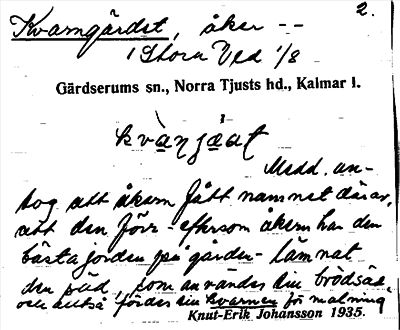 Kvarngärdet, åker -- 2.
i Stora Ved 1/8
Gärdserums sn., Norra Tjusts hd., Kalmar l.
kvanjat
Medd. an-
tog att åkern fått namnet därav,
att den förr - efterson åkern har den
bästa jorden på gården - lämnat
den säd, som användes till brödsäd
och alltså fördes till kvarnen för malning
Knut-Erik Johansson 1935.